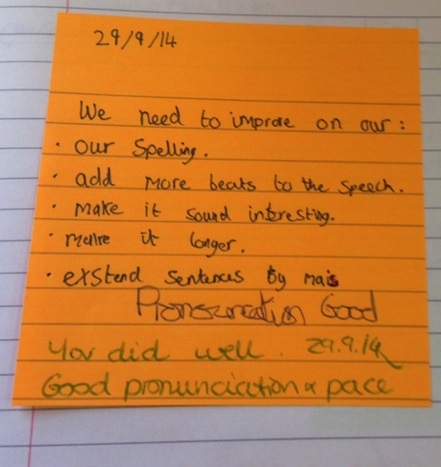 29/9/14
We need to improve on our :
· our Spelling.
· add more beats to the speech.
· make it sound interesting.
· make it longer.
· exstend sentences by
Pronounciation Good
You did well. 29.9.14
Good pronunciation & pace